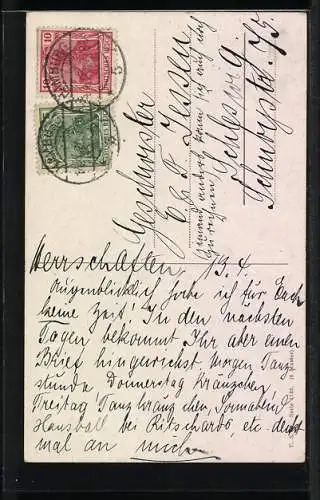 Geschwister
E. & F. Jessen
Schleswig
Schleystr. 75.
Herrschaften, 13.4.
Augenblicklich habe ich für Euch
keine Zeit! In den nächsten
Tagen bekommt Ihr aber einen
Brief hingerichst. Morgen Tanz
stunde Donnerstag Kränzchen
Freitag Tanzkränzchen, Sonnabend
Hausball bei Ritschards, etc. denkt
mal an mich